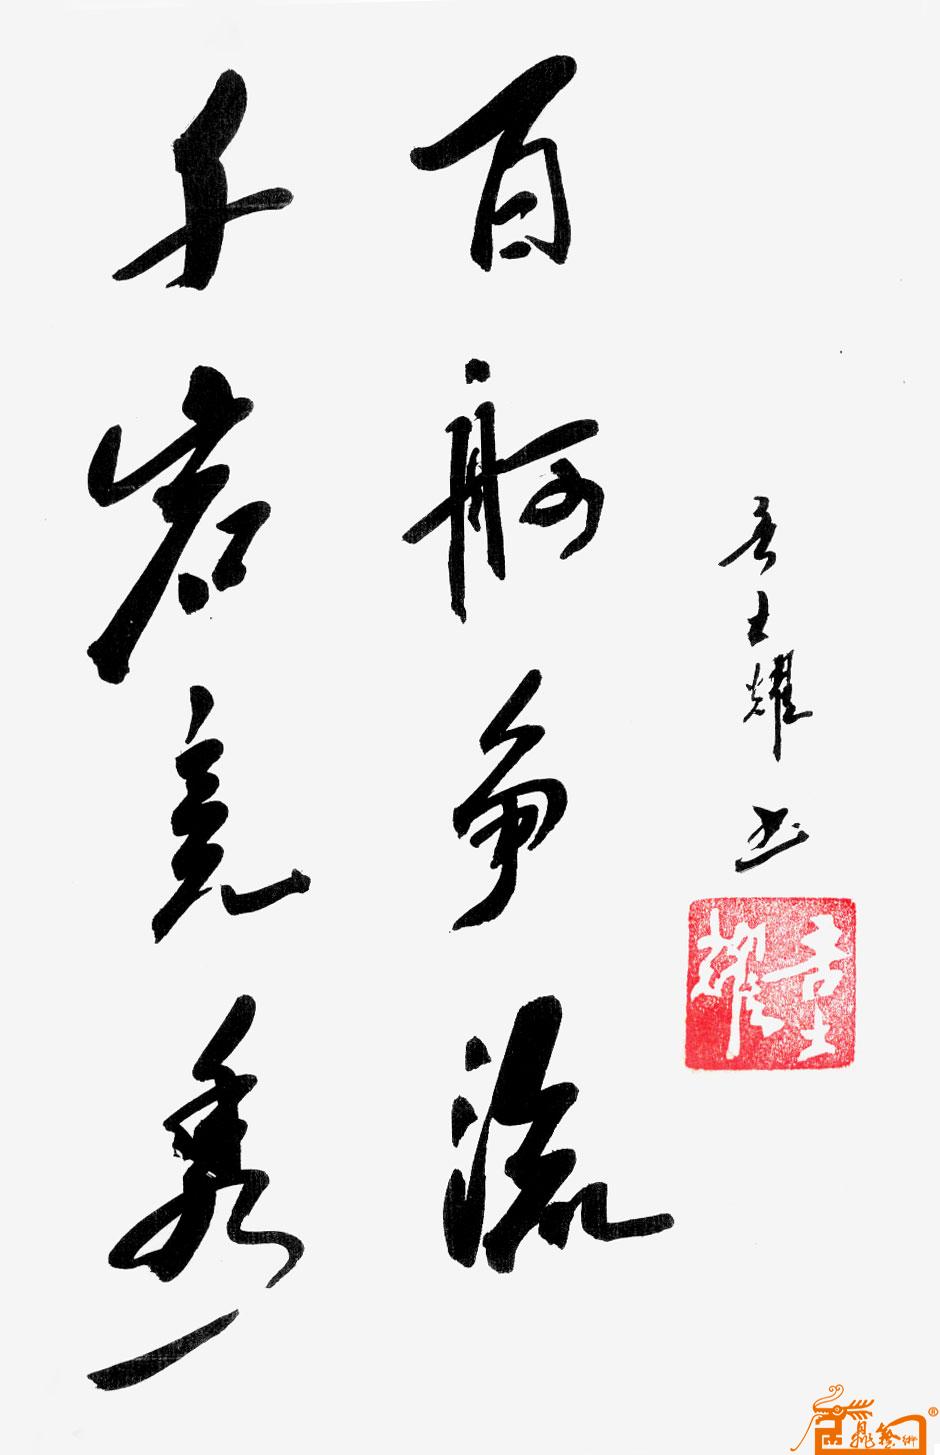 千岩竞秀
百舸争流
士耀书
士耀